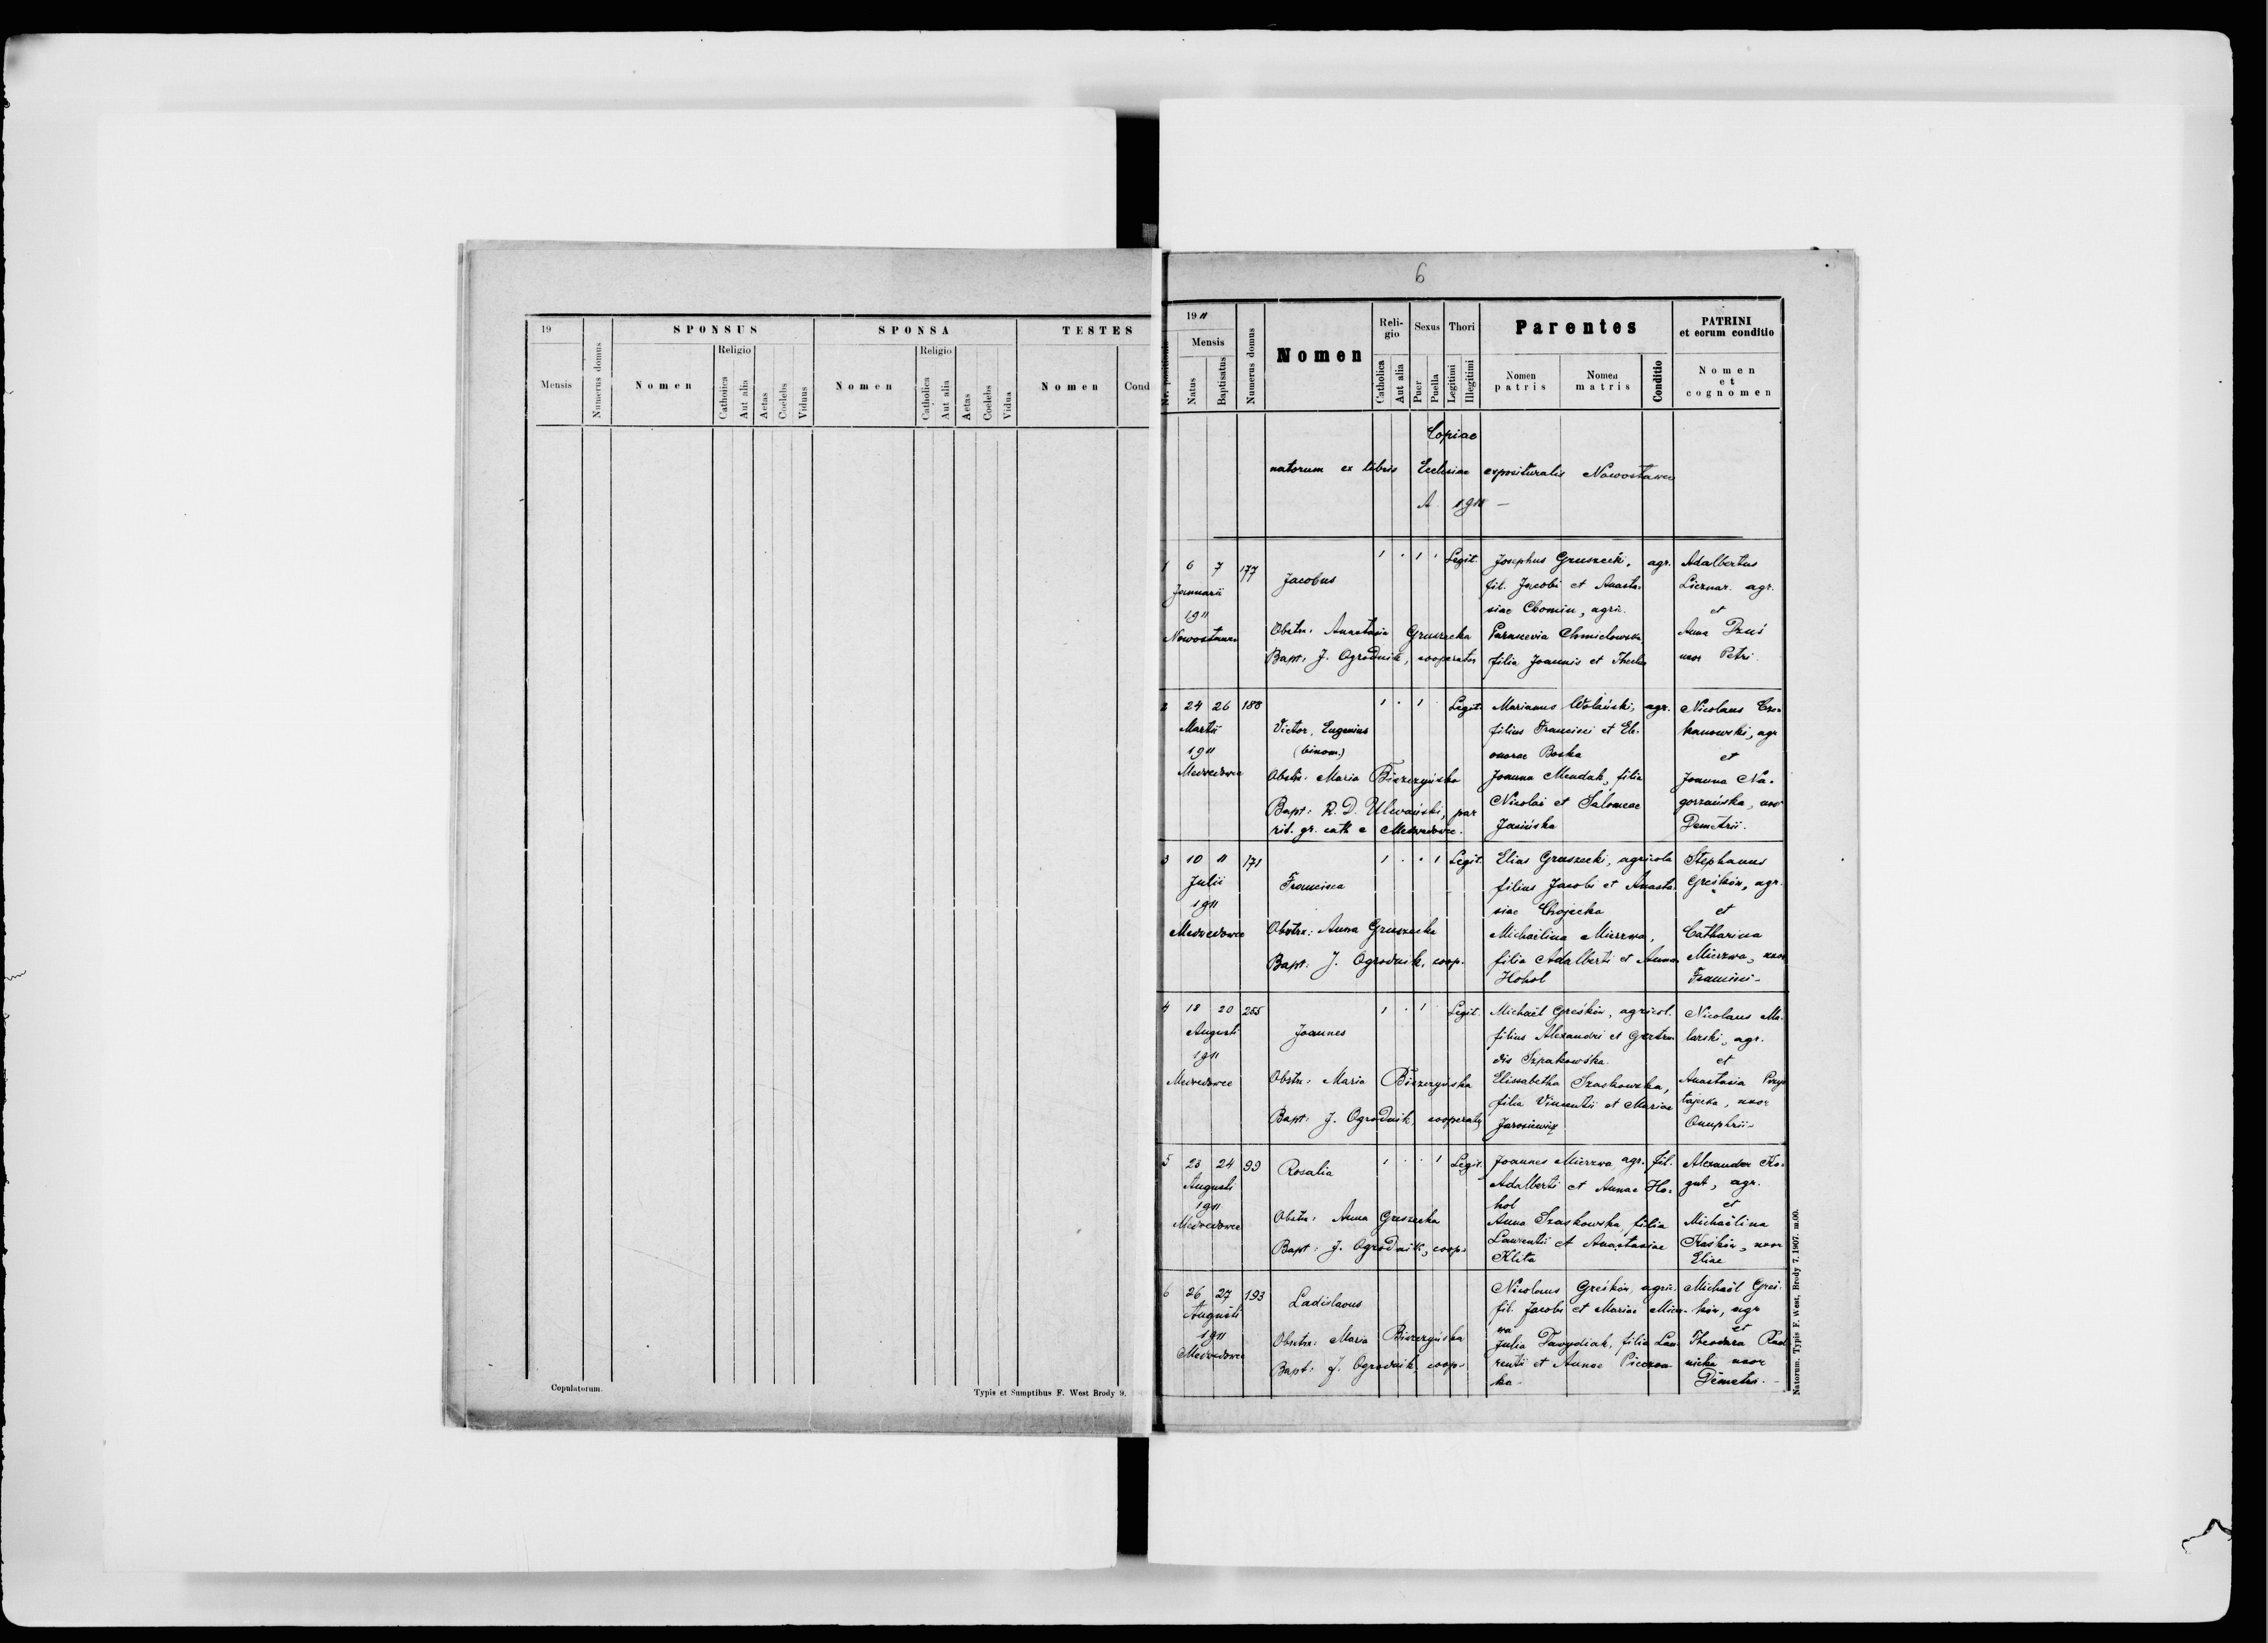 19
Mensis
Numerus domus
SPONSUS
Nomen
Religio
Catholica
Aut alia
Aetas
Coelebs
Viduus
SPONSA
Nomen
Religio
Catholica
Aut alia
Aetas
Coelebs
Vidua
TESTES
Nomen
Cond
Copulatorum.
Typis et Sumptibus F. West Brody 9.
6
Nr. positionis
1911
Mensis
Natus
Baptisatus
Numerus domus
Nomen
Religio
Catholica
Aut alia
Sexus
Puer
Puella
Thori
Legitimi
Illegitimi
Parentes
Nomen patris
Nomen matris
Conditio
PATRINI
et eorum conditio
Nomen
et
cognomen
Copiae
natorum ex libris Ecclesiae exposituralis Nowostawce
A. 1911 —
1 6 7 177
Januarii
1911
Nowostawce
Jacobus
Obstr: Anastasia Gruszecka
Bapt: J. Ogrodnik, cooperator
Legit.
Josephus Gruszecki, agr.
fil. Jacobi et Anasta-
siae Chomin, agric.
Parascevia Chmielowska
filia Joannis et Theclae
Adalbertus
Licznar. agr.
et
Anna Dzuś
uxor Petri.
2 24 26 188
Martii
1911
Medwedowce
Victor, Eugenius
(binom.)
Obstr: Maria
Bapt: R. D. Ulwański, par
rit. gr. cath e Medwedowce.
Legit.
Marianus Wolański, agr.
filius Francisci et Ele-
onorae Boska
Joanna Mendak, filia
Nicolai et Salomeae
Jasińska
Nicolaus
kanowski, agr
et
Joanna Na-
gorzańska, uxor
Demetrii.
3 10 11 171
Julii
1911
Medwedowce
Francisca
Obstr: Anna Gruszecka
Bapt: J. Ogrodnik, coop.
Legit.
Elias Gruszecki, agricola
filius Jacobi et Anasta-
siae Chojecka
Michaëlina Mierzwa,
filia Adalberti et Annae
Hohol
Stephanus
Greśków, agr.
et
Catharina
Mierzwa, uxor
Francisci.
4 18 20 255
Augusti
1911
Medwedowce
Joannes
Obstr: Maria
Bapt: J. Ogrodnik, cooperator
Legit.
Michaël Greśków, agricol.
filius Alexandri et Gertru-
dis Szpakowska.
Elisabetha Szaskowska,
filia Vincentii et Mariae
Jarosiewicz
Nicolaus Ma-
larski, agr.
et
Anastasia Przy-
tajecka, uxor
Onuphrii.
5 23 24 99
Augusti
1911
Medwedowce
Rosalia
Obstr: Anna Gruszecka
Bapt: J. Ogrodnik, coop.
Legit.
Joannes Mierzwa, agr. fil.
Adalberti et Annae Ho-
hol
Anna Szaskowska, filia
Laurentii et Anastasiae
Klita
Alexander Ko-
gut, agr.
et
Michaëlina
Kaśków, uxor
Eliae
6 26 27 193
Augusti
1911
Medwedowce
Ladislaus
Obstr: Maria
Bapt: J. Ogrodnik, coop.
Nicolaus Greśków, agric.
fil. Jacobi et Mariae Mierz-
wa
Julia Dawydiak, filia Lau-
rentii et Annae
ka.
Michaël Greś-
ków, agr
et
Theodora Rud-
nicka uxor
Demetri.
Natorum. Typis F. West, Brody 7. 1907. m.00.